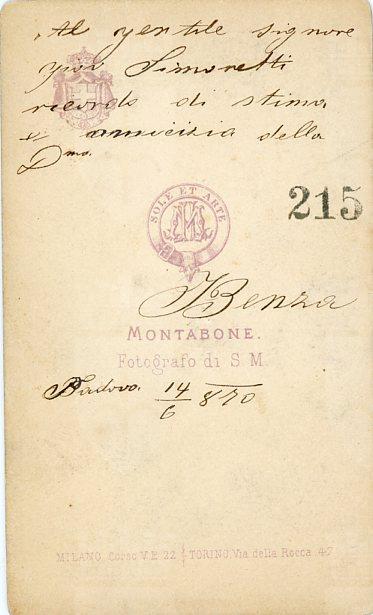 Al gentile signore
Giov Simonetti
ricordo di stima
amicizia della
Dma.
SOLE ET ARTE
215
Benza
MONTABONE.
Fotografo di S. M.
Padova. 14/6 870
MILANO, Corso V.E. 22 TORINO, Via della Rocca 47